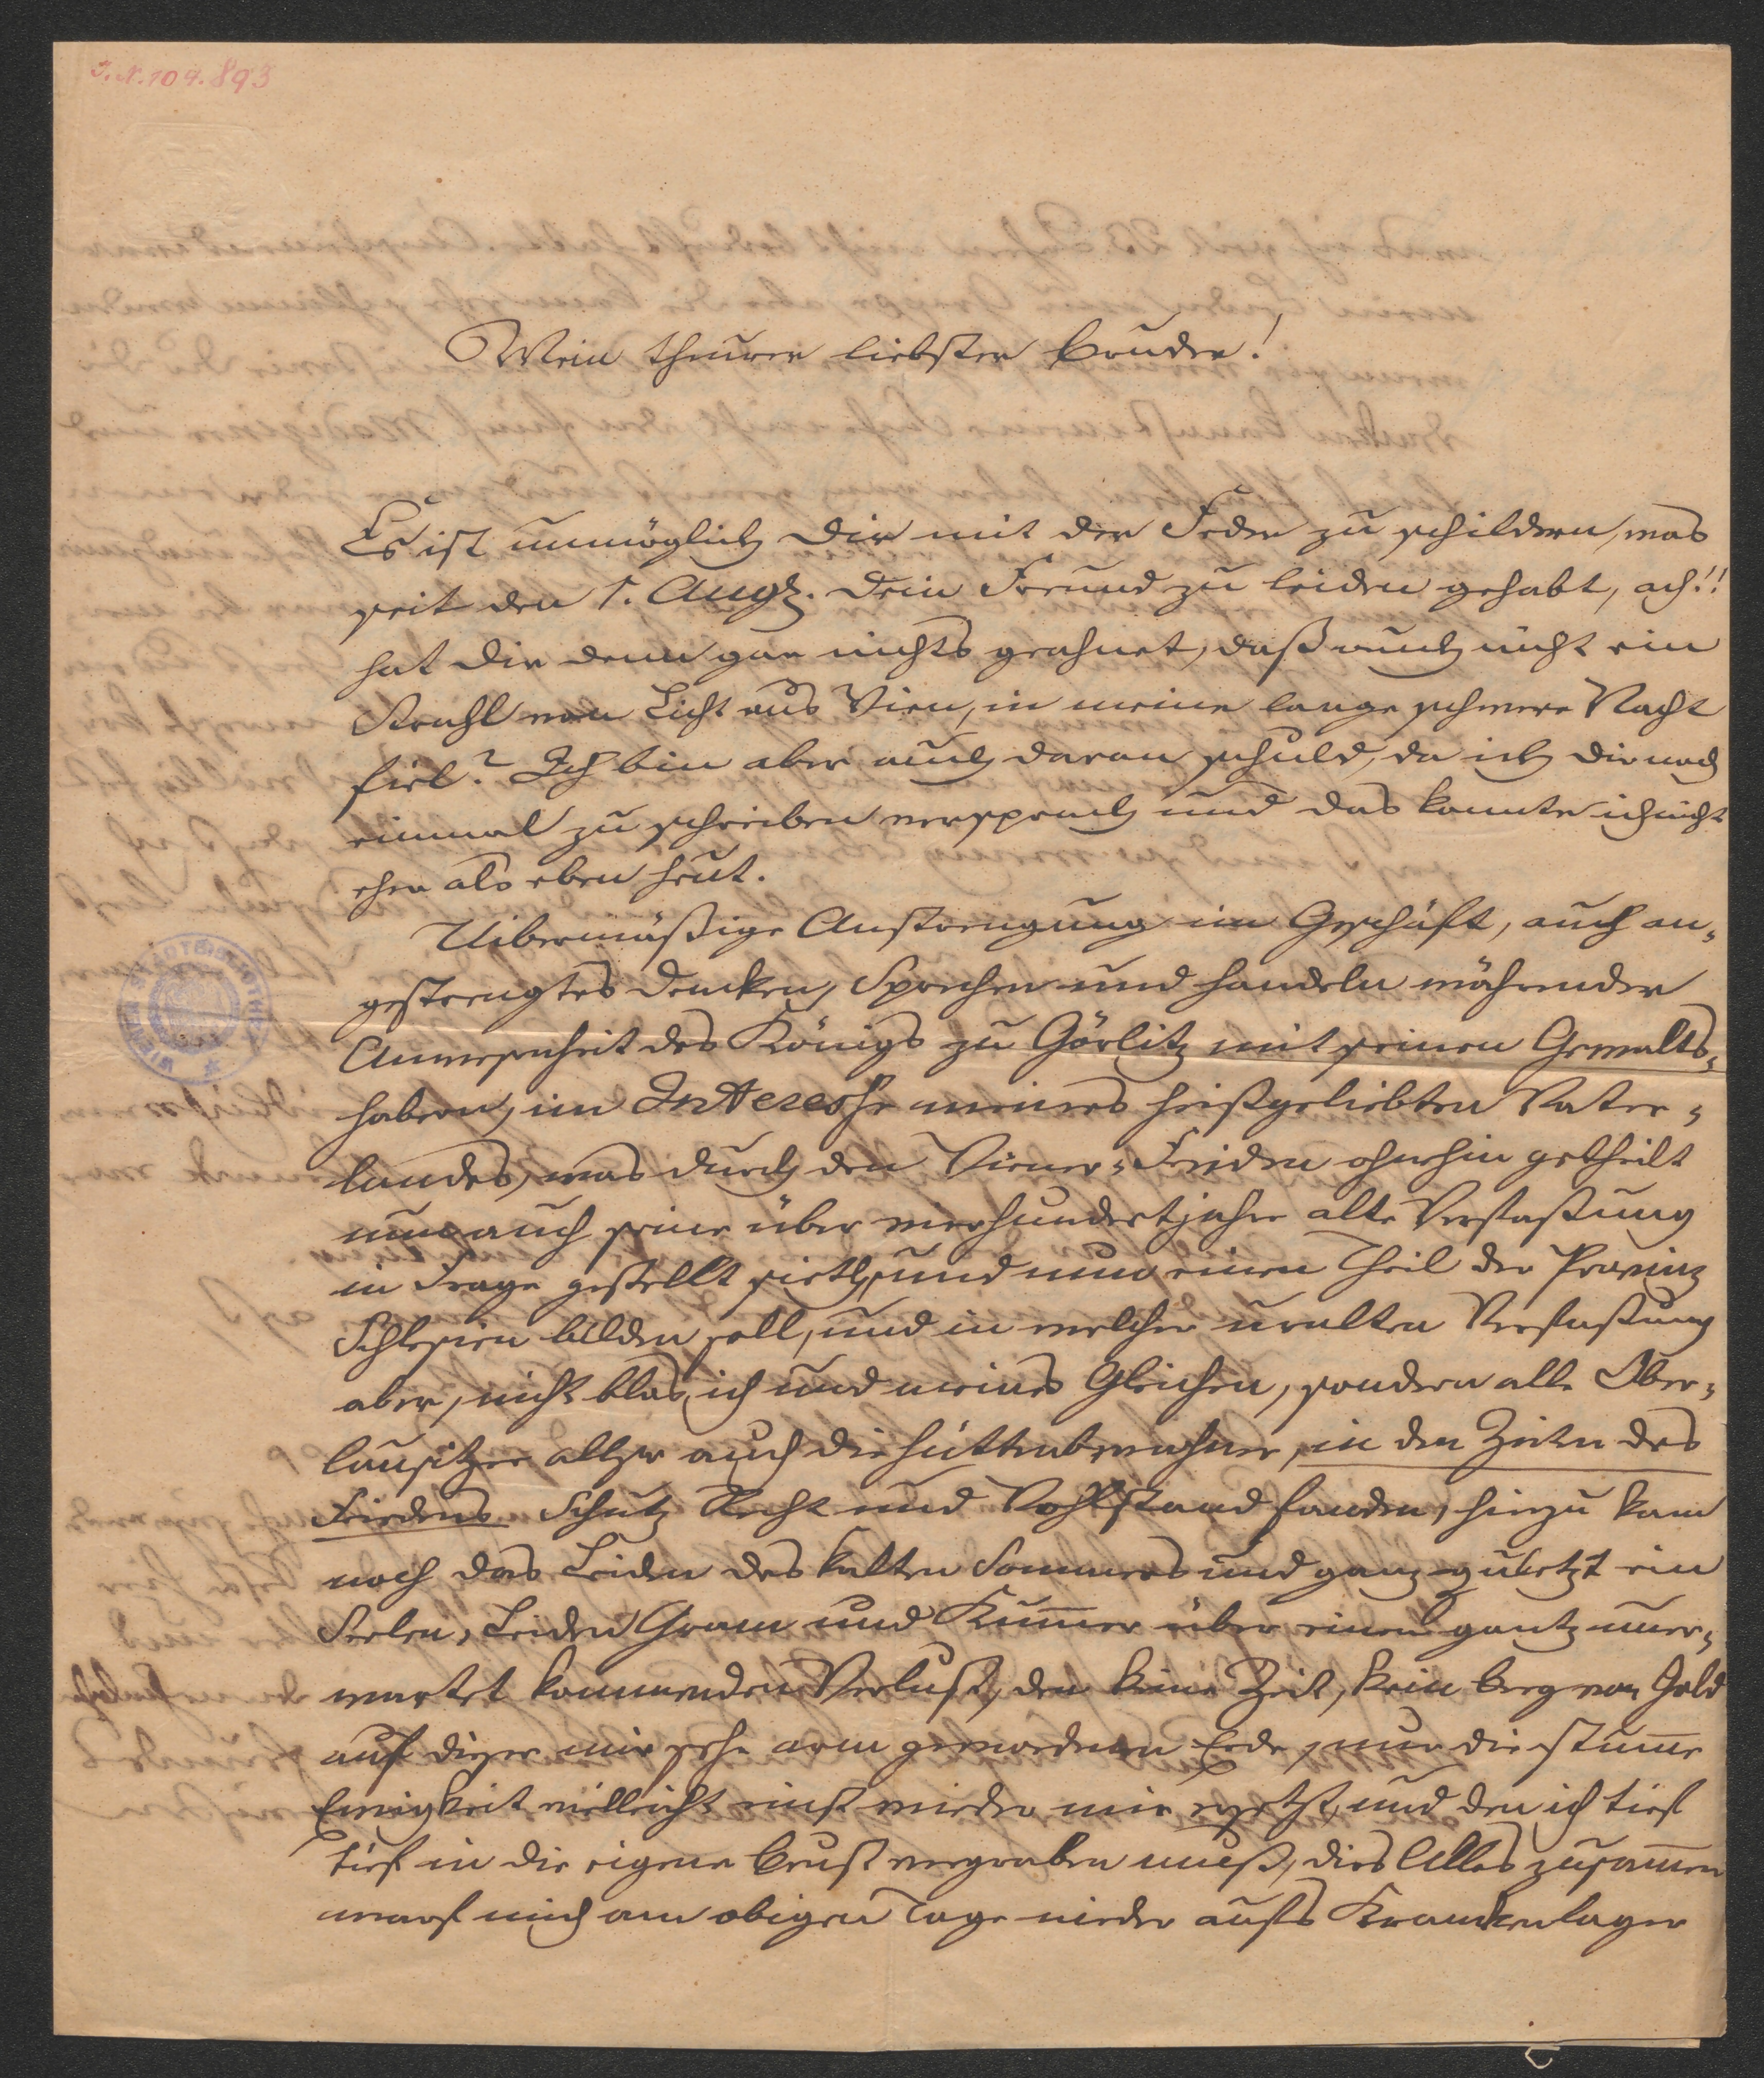 I.N. 109.893
Mein theurer liebster Bruder!
Es ist unmöglich Dir mit der Feder zu schildern, was
seit den 1. Augt. Dein Freund zu leiden gehabt, ach!!
hat Dir denn gar nichts geahnet, daß auch nicht ein
Strahl von Licht aus Wien, in meine lange schwere Nacht
fiel? Ich bin aber auch daran schuld, da ich Dir noch
einmal zu schreiben versprach und das konnte ich nicht
eher als eben heut.
Uibermäßige Anstrengung im Geschäft, auch an„
gestrengtes Denken, Sprechen und handeln während der
Anwesenheit des Königs zu Görlitz mit seinen Gewalts„
habern, im Interesse meines heißgeliebten Vater„
landes, was durch den Wiener„Frieden ohnehin getheilt
nun auch seine über vierhundertjahre alte Verfaßung
in Frage gestellt sieth, und nun einen Theil der Provinz
Schlesien bilden soll, und in welcher uralten Verfaßung
aber, nicht blos ich und meines Gleichen, sondern alle Ober„
lausitzer also auch die hüttenbewohner, in den Zeiten des
Friedens Schutz Recht und Wohlstand fanden, hinzu kam
noch das Leiden des kalten Sommers und ganz zuletzt ein
Seelen„Leiden Gram und Kum̅er über einen gantz uner„
wartet kommenden Verlust, den keine Zeit, kein berg von Gold
auf dieser mir sehr arm gewordenen Erde, nur die stum̅e
Ewigkeit vielleicht einst wieder mir ersetzt, und den ich tief
tief in die eigene Brust vergraben muß, dies Alles zusam̅en
warf mich am obigen Tage nieder aufs Krankenlager
WIENER STADTBIBLIOTHEK